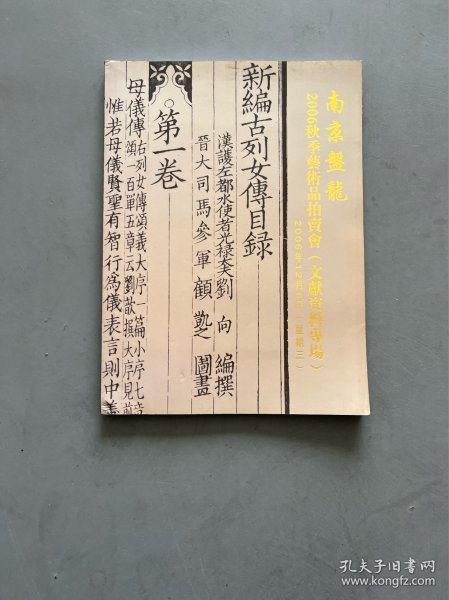 南京盤龍
2006秋季藝術品拍賣會（文獻資料專場）
新編古列女傳目錄
漢護左都水使者光祿大夫劉向編撰
晉大司馬參軍顧凱之圖畫
第一卷
母儀傳
古列女傳頌義大序一篇小序七章
頌一百單五章云劉歆撰大序見前
惟若母儀賢聖有智行為儀表言則中義
孔夫子旧书网
www.kongfz.com